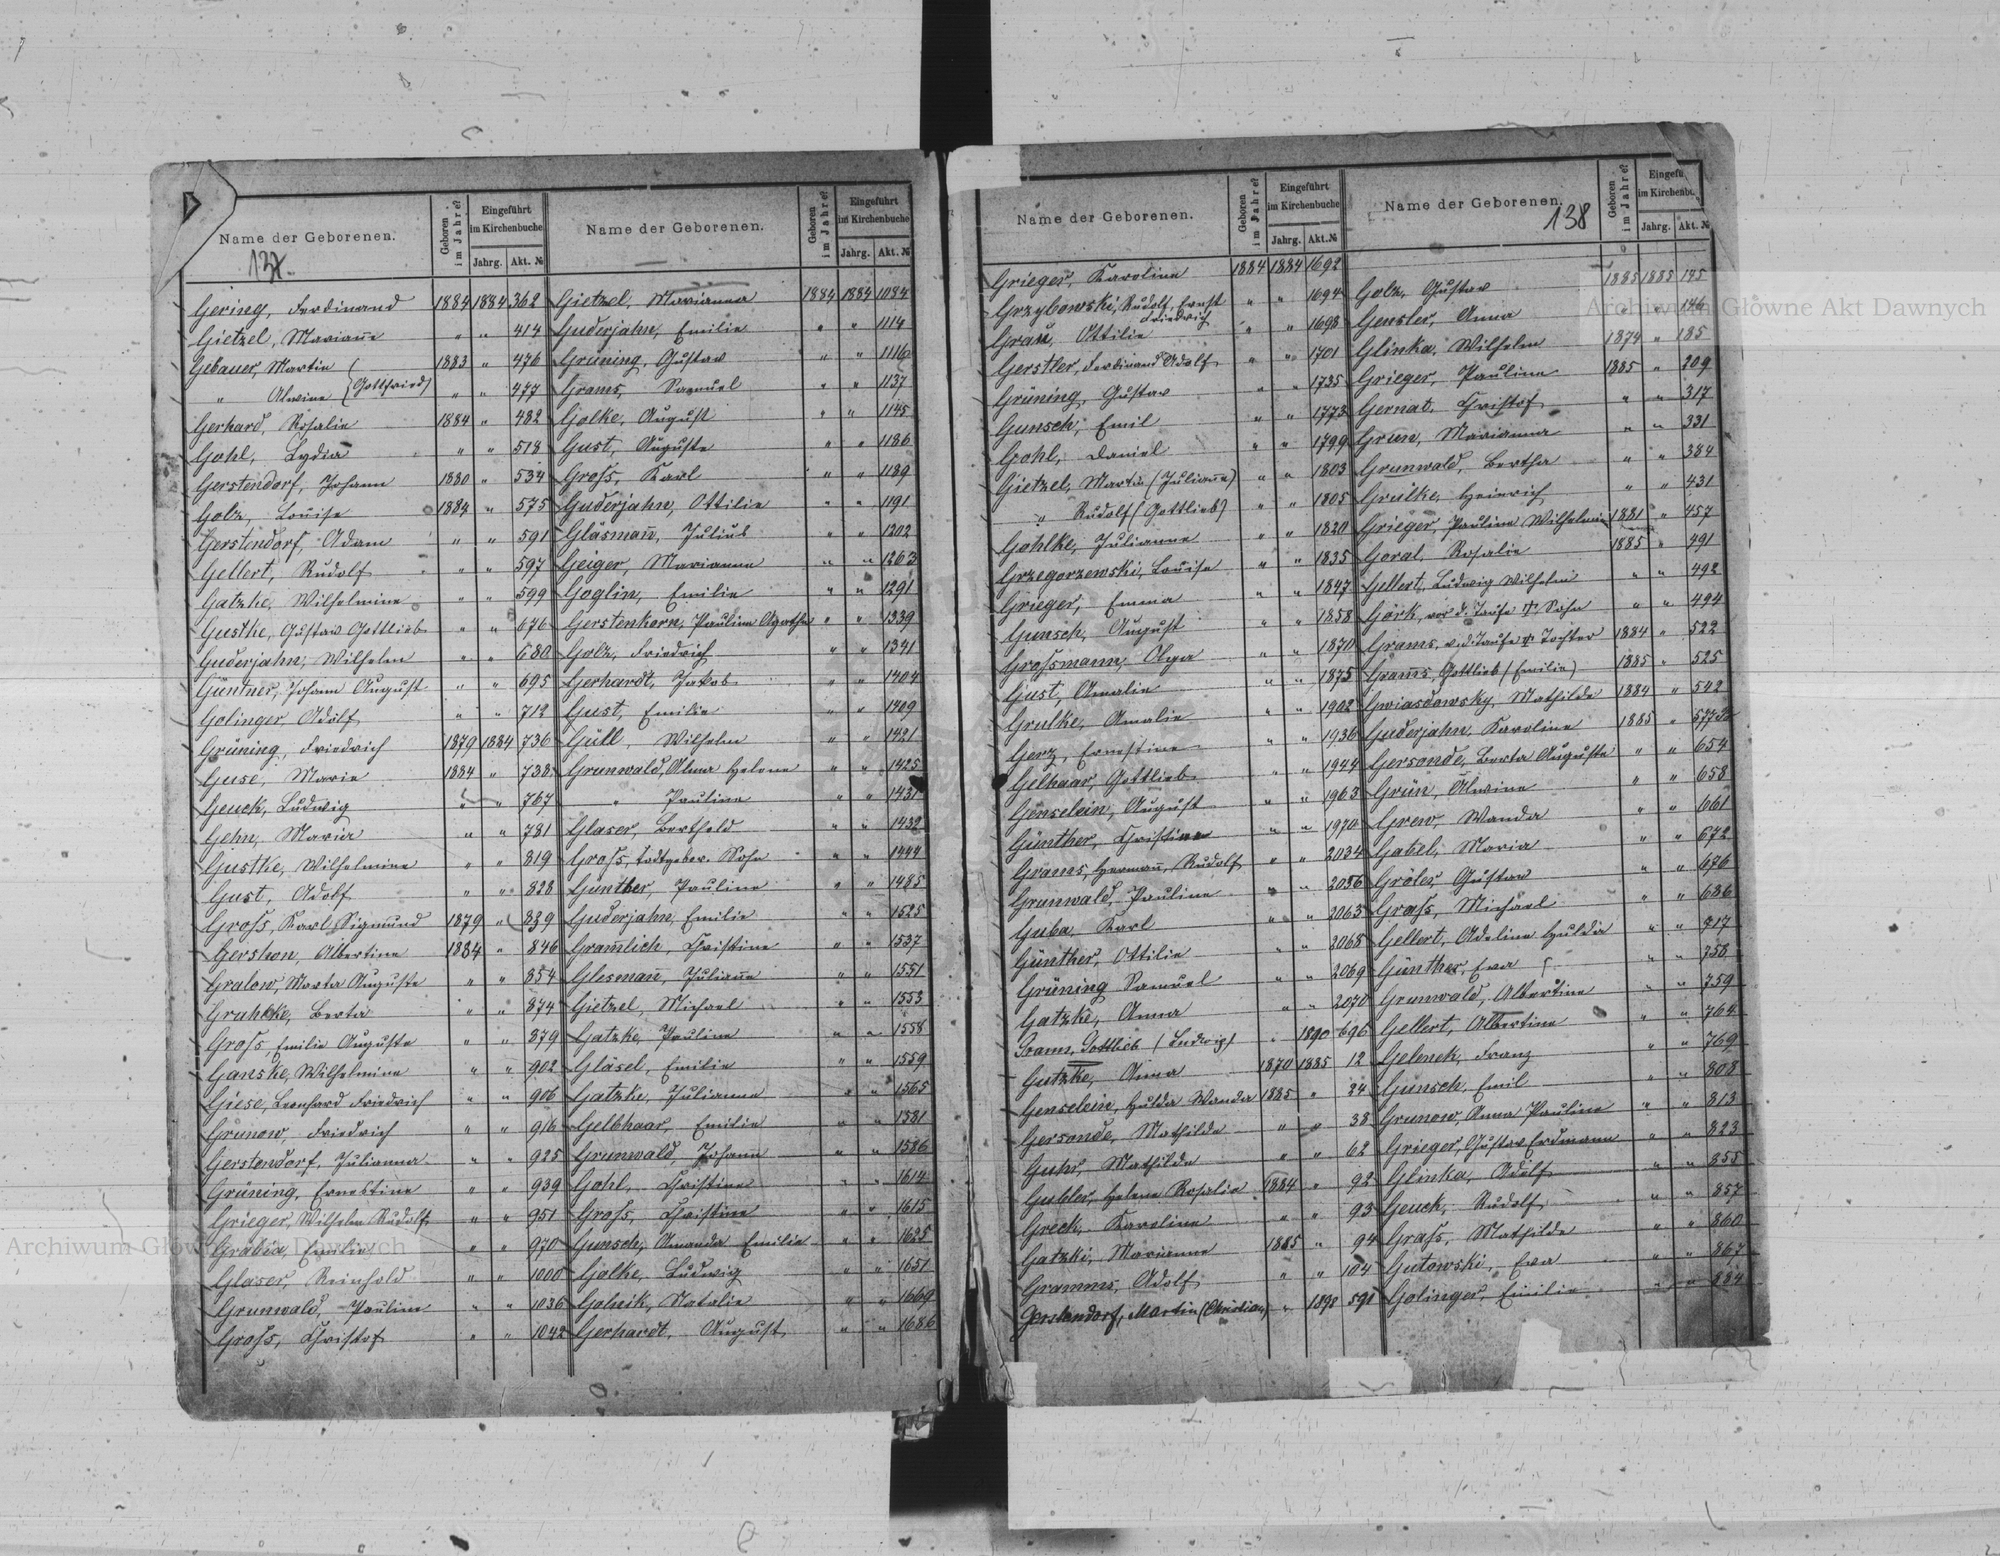 Name der Geborenen.
Geboren im Jahre?
Eingeführt im Kirchenbuche
Jahrg. Akt. №
137.
Gering, Ferdinand 1884 1884 362
Gietzel, Marianne " " 414
Gebauer, Martin 1883 " 476
" Alwine (Gottfried) " " 477
Gerhard, Rosalie 1884 " 482
Gohl, Lydia " " 518
Gerstendorf, Johann 1880 " 534
Golz, Louise 1884 " 575
Gerstendorf, Adam " " 591
Gellert, Rudolf " " 597
Gatzke, Wilhelmine " " 599
Gustke, Gustav Gottlieb " " 676
Guderjahn, Wilhelm " " 680
Güntner, Johann August " " 695
Golinger, Adolf " " 712
Grüning, Friedrich 1879 1884 736
Guse, Marie 1884 " 738
Geuck, Ludwig " " 767
Gehn, Maria " " 781
Gustke, Wilhelmine " " 819
Gust, Adolf " " 828
Groß, Karl Sigmund 1879 " 839
Gershon, Albertine 1884 " 846
Gralow, Marta Auguste " " 854
Gruhlke, Berta " " 874
Groß, Emilie Auguste " " 879
Ganske, Wilhelmine " " 902
Giese, Leonhard Friedrich " " 906
Grunow, Friedrich " " 916
Gerstendorf, Julianna " " 925
Grüning, Ernestine " " 939
Grieger, Wilhelm Rudolf " " 951
Grabia, Emilie " " 970
Glaser, Reinhold " " 1000
Grunwald, Pauline " " 1036
Groß, Christof " " 1042
Name der Geborenen.
Geboren im Jahre?
Eingeführt im Kirchenbuche
Jahrg. Akt. №
Gietzel, Marianna 1884 1884 1084
Guderjahn, Emilie " " 1114
Grüning, Gustav " " 1116
Grams, Samuel " " 1137
Golke, August " " 1145
Gust, Auguste " " 1186
Groß, Karl " " 1189
Guderjahn, Ottilie " " 1191
Gläsmañ, Julius " " 1202
Geiger, Marianne " " 1263
Goglin, Emilie " " 1291
Gerstenkorn, Pauline Agathe " " 1339
Golz, Friedrich " " 1341
Gerhardt, Jakob " " 1404
Gust, Emilie " " 1409
Güll, Wilhelm " " 1421
Grunwald, Alma Helene " " 1425
" Pauline " " 1431
Glaser, Berthold " " 1432
Groß, todtgebor. Sohn " " 1444
Günther, Pauline " " 1485
Guderjahn, Emilie " " 1525
Gramlich, Christine " " 1537
Glesmañ, Juliañe " " 1551
Gietzel, Michael " " 1553
Gatzke, Pauline " " 1558
Gläsel, Emilie " " 1559
Gatzke, Julianne " " 1565
Gelbhaar, Emilie " " 1581
Grunwald, Johann " " 1586
Gohl, Christine " " 1614
Groß, Christine " " 1615
Gunsch, Amanda Emilie " " 1625
Golke, Ludwig " " 1651
Golneik, Natalie " " 1669
Gerhardt, August " " 1686
Name der Geborenen.
Geboren im Jahre?
Eingeführt im Kirchenbuche
Jahrg. Akt. №
Grieger, Karoline 1884 1884 1692
Grzybowski, Rudolf, Ernst Friedrich " " 1694
Grau, Ottilie " " 1698
Gerstler, Ferdinand Adolf " " 1701
Grüning, Gustav " " 1735
Gunsch, Emil " " 1773
Gohl, Daniel " " 1799
Gietzel, Martin (Juliañe) " " 1803
" Rudolf (Gottlieb) " " 1805
Gohlke, Julianne " " 1820
Grzegorzewski, Louise " " 1835
Grieger, Emma " " 1847
Gunsch, August " " 1858
Großmann, Olga " " 1870
Gust, Amalie " " 1875
Grulke, Amalie " " 1902
Gerz, Ernestine " " 1936
Gelhaar, Gottlieb " " 1944
Genselein, August " " 1963
Günther, Christine " " 1970
Grams, Hermañ, Rudolf " " 2034
Grunwald, Pauline " " 2056
Guba, Karl " " 2063
Günther, Ottilie " " 2068
Grüning Samuel " " 2069
Gatzke, Anna " " 2070
Gramm, Gottlieb (Ludwig) " 1890 696
Gutzke, Anna 1870 1885 12
Genselein, Hulda Wanda 1885 " 24
Gersonde, Mathilde " " 38
Guhr, Mathilde " " 62
Gubler, Helene Rosalie 1884 " 92
Greck, Karoline " " 93
Gatzki, Marianne 1885 " 94
Gramms, Adolf " " 104
Gerstendorf, Martin (Christian) " 1898 591
Name der Geborenen.
138
Geboren im Jahre?
Eingefü
im Kirchenbu.
Jahrg. Akt. №
Golz, Gustav 1885 1885 145
Gensler, Anna " " 146
Glinka, Wilhelm 1874 " 185
Grieger, Pauline 1885 " 209
Gernat, Christof " " 317
Grun, Marianna " " 331
Grunwald, Bertha " " 384
Grulke, Heinrich " " 431
Grieger, Pauline Wilhelmine 1881 " 457
Goral, Rosalie 1885 " 491
Gellert, Ludwig Wilhelm " " 492
Görk, vor d. Taufe †, Sohn " " 494
Grams, v. d. Taufe † Tochter 1884 " 522
Gramß, Gottlieb (Emilie) 1885 " 525
Gwiasdowsky, Mathilde 1884 " 542
Guderjahn, Karoline 1885 " 577
Gersonde, Berta Auguste " " 654
Grün, Alwine " " 658
Grew, Wanda " " 661
Gabel, Maria " " 672
Gröler, Gustav " " 676
Graß, Michael " " 686
Gellert, Adeline Hulda " " 717
Günther, Eva " " 758
Grunwald, Albertine " " 759
Gellert, Albertine " " 764
Gelenek, Franz " " 769
Gunsch, Emil " " 808
Grunow, Anna Pauline " " 813
Grieger, Gustav Erdmann " " 823
Glinka, Adolf " " 855
Geuck, Rudolf " " 857
Graß, Mathilde " " 860
Gutowski, Eva " " 867
Golinger, Emilie " " 884
Archiwum Główne Akt Dawnych
Archiwum Główne Akt Dawnych